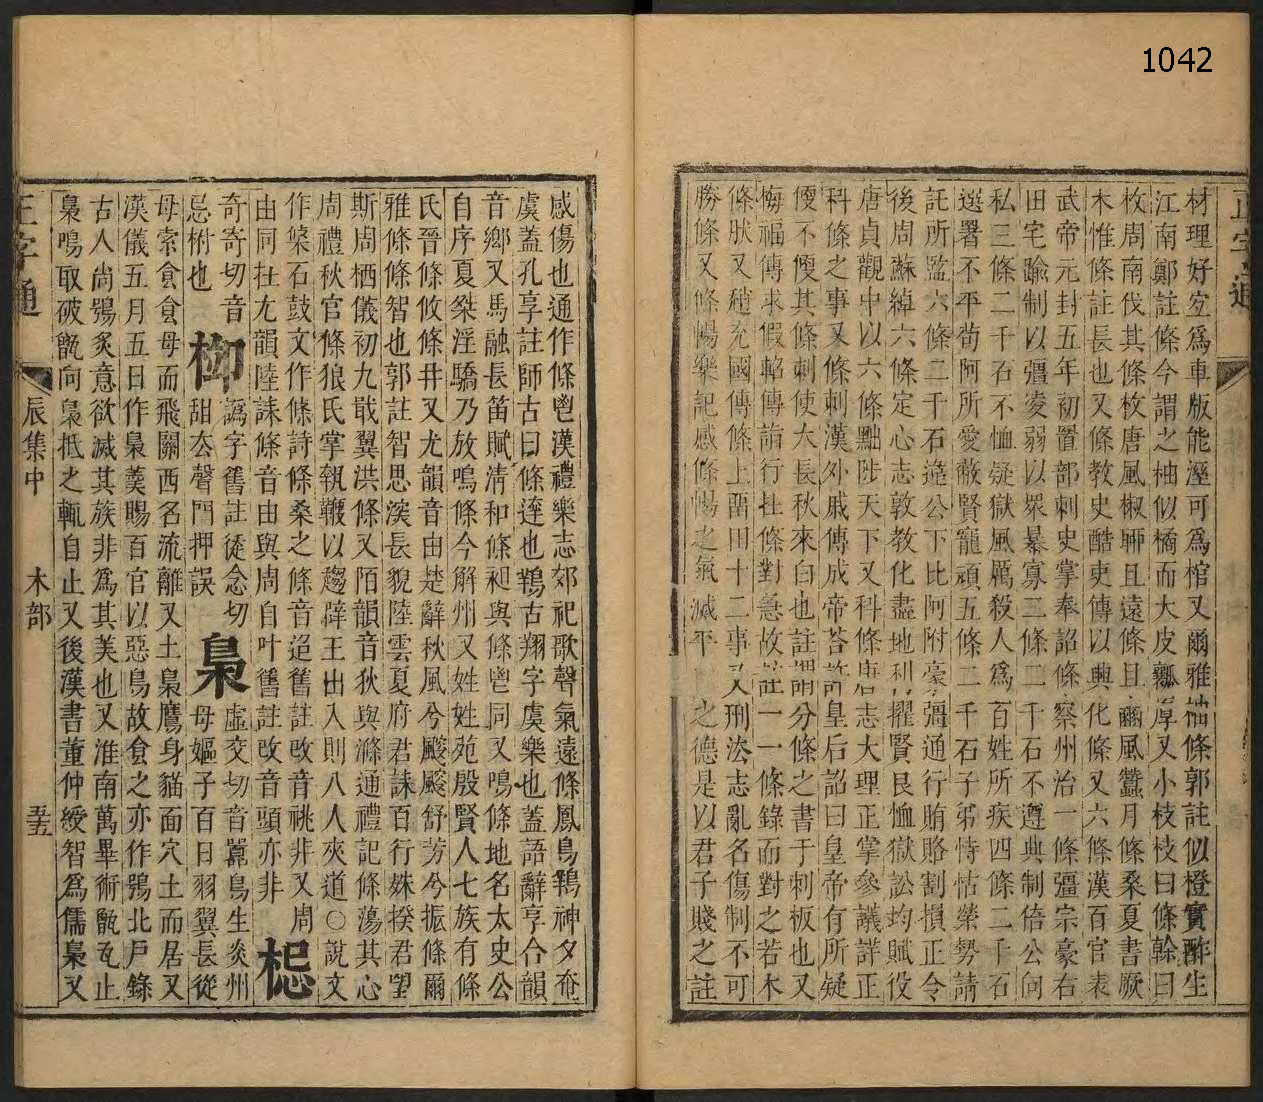 1042
正字通
材理好宐爲車版能溼可爲棺又爾雅柚條郭註似橙實酢生
江南鄭註條今謂之柚似橘而大皮瓤厚又小枝枝曰條榦曰
枚周南伐其條枚唐風椒聊且遠條且豳風蠶月條桑夏書厥
木惟條註長也又條教史酷吏傳以興化條又六條漢百官表
武帝元封五年初置部刺史掌奉詔條察州治一條彊宗豪右
田宅踰制以彊凌弱以眾暴寡二條二千石不遵典制倍公向
私三條二千石不恤疑獄風厲殺人爲百姓所疾四條二千石
選署不平苟阿所愛蔽賢寵頑五條二千石子弟恃怙榮勢請
託所監六條二千石違公下比阿附豪彊通行賄賂割損正令
後周蘇綽六條定心志敦教化盡地利擢賢良恤獄訟均賦役
唐貞觀中以六條黜陟天下又科條唐志大理正掌參議詳正
科條之事又條刺漢外戚傳成帝荅許皇后詔曰皇帝有所疑
便不便其條刺使大長秋來白也註謂分條之書于刺板也又
梅福傳求假軺傳詣行在條對急故註一一條錄而對之若木
條狀又趙充國傳條上畱田十二事又刑法志亂名傷制不可
勝條又條暢樂記感條暢之氣滅平 之德是以君子賤之註
感傷也通作條鬯漢禮樂志郊祀歌聲氣遠條鳳鳥鶉神夕奄
虞蓋孔享註師古曰條達也鶉古翔字虞樂也蓋語辭亨合韻
音鄉又馬融長笛賦清和條昶與條鬯同又鳴條地名太史公
自序夏桀淫驕乃放鳴條今解州又姓姓苑殷賢人七族有條
氏晉條攸條井又尤韻音由楚辭秋風兮飋飋舒芳兮振條爾
雅條條智也郭註智思深長貌陸雲夏府君誄百行姝揆君望
斯周栖儀初九戢翼洪條又陌韻音狄與滌通禮記條蕩其心
周禮秋官條狼氏掌執鞭以趨辟王出入則八人夾道○說文
作樤石鼓文作條詩條桑之條音迢舊註改音祧非又周
由同在尤韻陸誄條音由與周自叶舊註改音頭亦非 梞
奇寄切音忌柎也 㭓 譌字舊註徒念切甜去聲門押誤 梟 虛交切音嚻鳥生炎州母嫗子百日羽翼長從
母索食食母而飛關西名流離又土梟鷹身貓面穴土而居又
漢儀五月五日作梟羹賜百官以惡鳥故食之亦作鴞北戶錄
古人尙鴞炙意欲滅其族非爲其美也又淮南萬畢術甑瓦止
梟鳴取破甑向梟抵之輒自止又後漢書董仲綬智爲儒梟又
正字通 辰集中 木部 五五